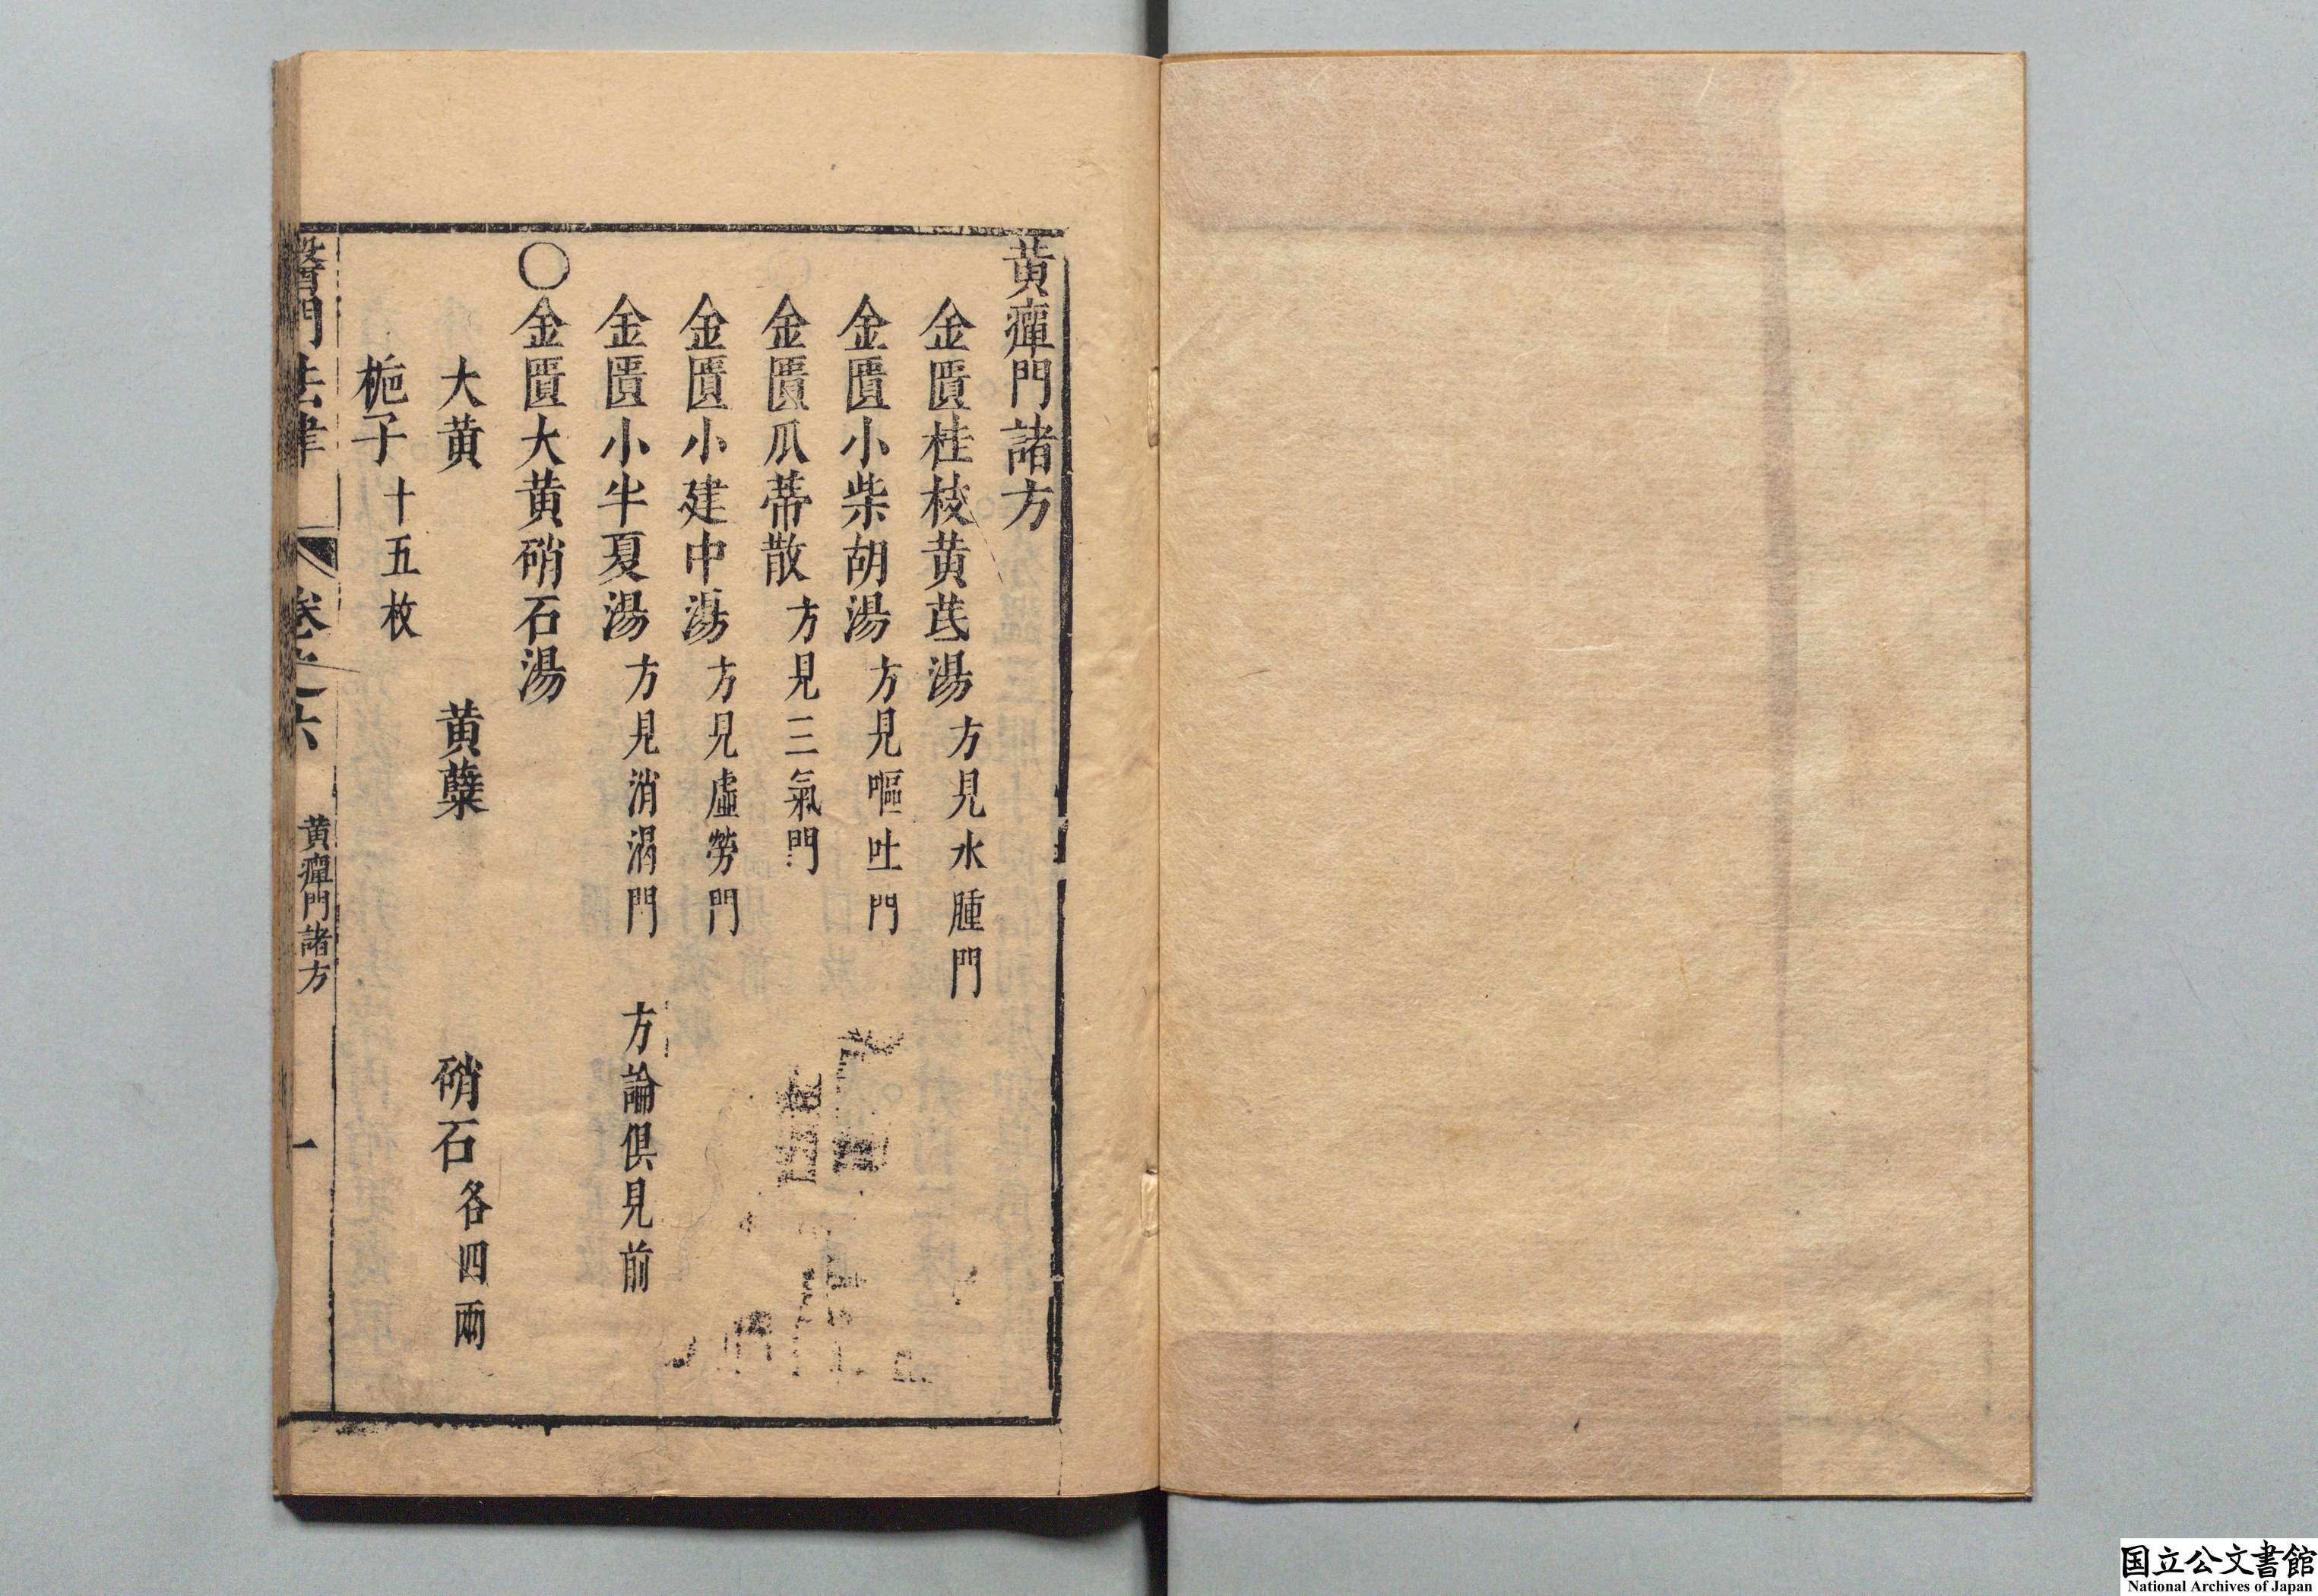 黄癉門諸方
金匱桂枝黄芪湯 方見水腫門
金匱小柴胡湯 方見嘔吐門
金匱瓜蒂散 方見三氣門
金匱小建中湯 方見虛勞門
金匱小半夏湯 方見消渴門 方論俱見前
○金匱大黄硝石湯
大黄 黄蘗 硝石 各四兩
梔子 十五枚
醫門法律 卷之六 黄癉門諸方 一
国立公文書館
National Archives of Japan